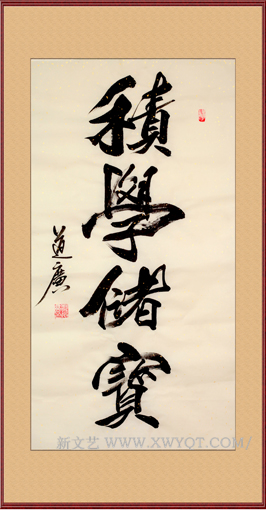 積學儲寶
道廣
新文艺 WWW.XWYQT.COM/